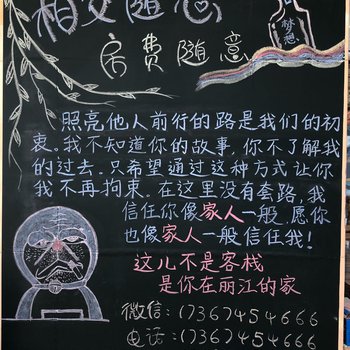 相交随意
房费随意
梦想
照亮他人前行的路是我们的初
衷。我不知道你的故事,你不了解我
的过去。只希望通过这种方式让你
我不再拘束。在这里没有套路,我
信任你像家人一般,愿你
也像家人一般信任我!
这儿不是客栈
是你在丽江的家
微信:17367454666
电话:17367454666